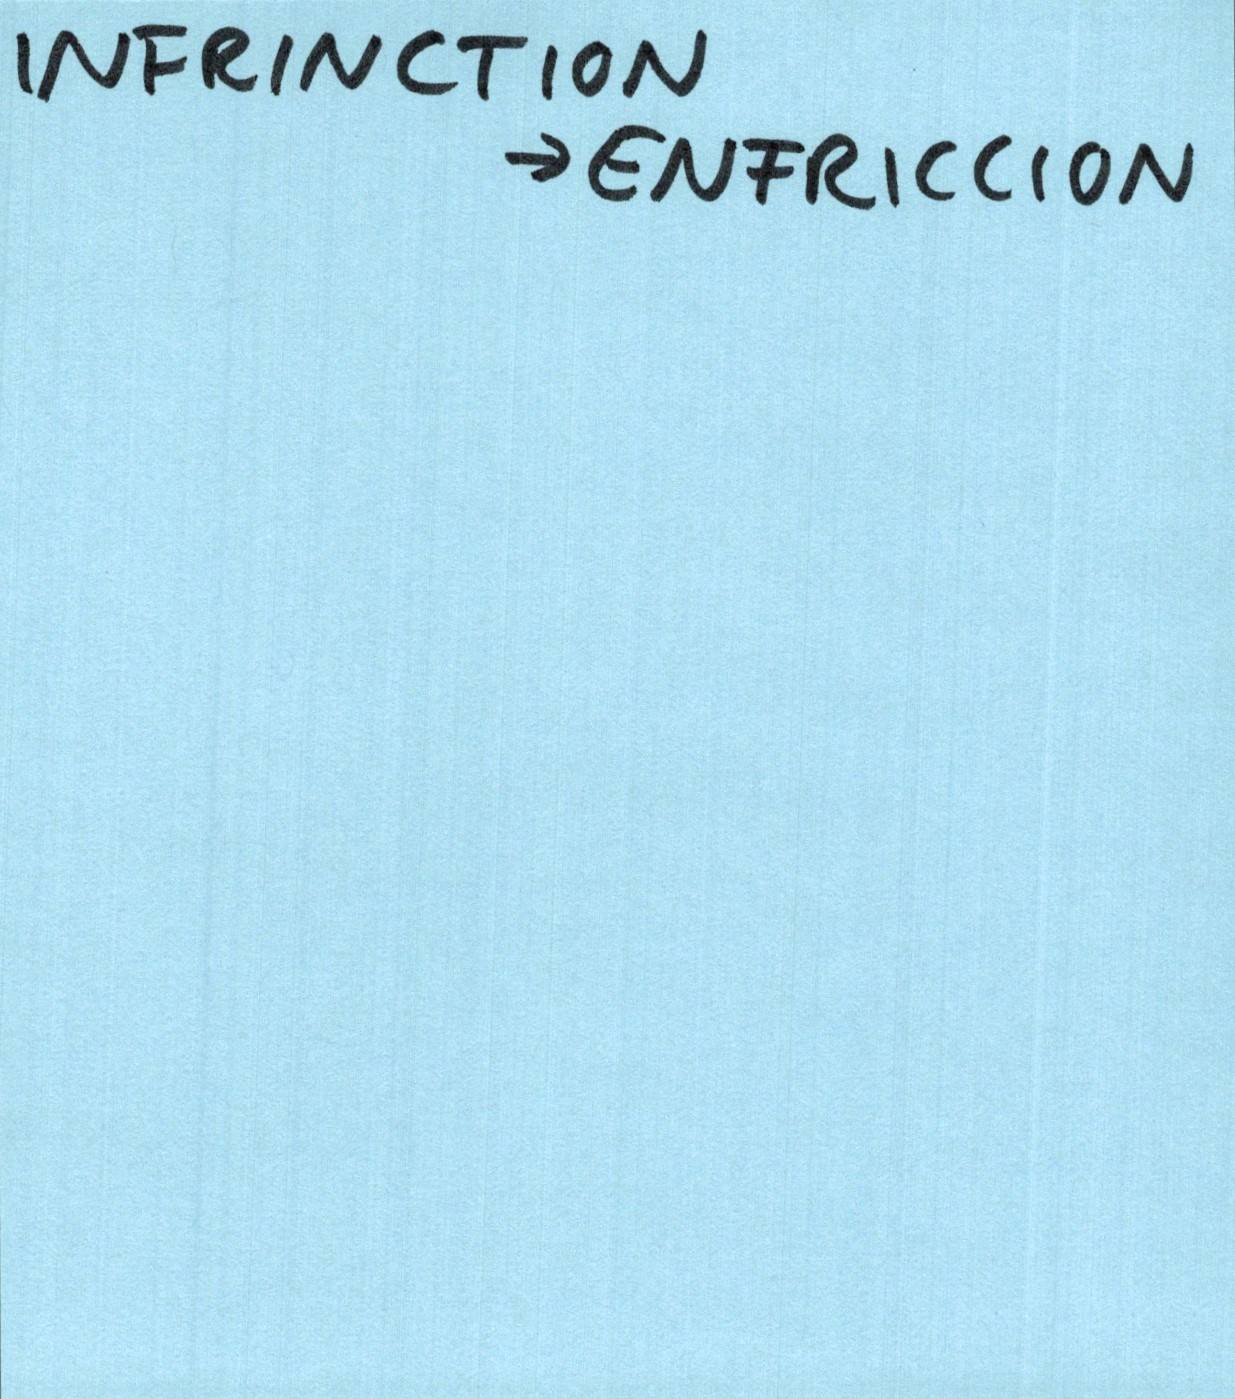 INFRINCTION
→ENFRICCION